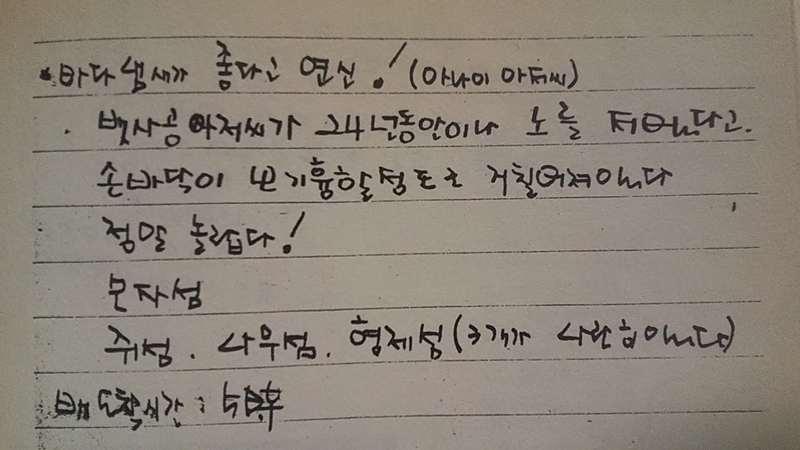 • 바다냄새가 좋다고 연신! (아나이 아저씨)
. 뱃사공아저씨가 24년동안이나 노를 저었다고.
손바닥이 보기흉할정도로 거칠어져있었다
정말 놀랍다!
모자섬
쥐섬. 나무섬. 형제섬 (3개가 나란히있다)
배 도착시간 :